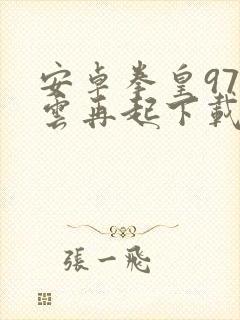 安卓拳皇97風
雲再起下載
張一飛